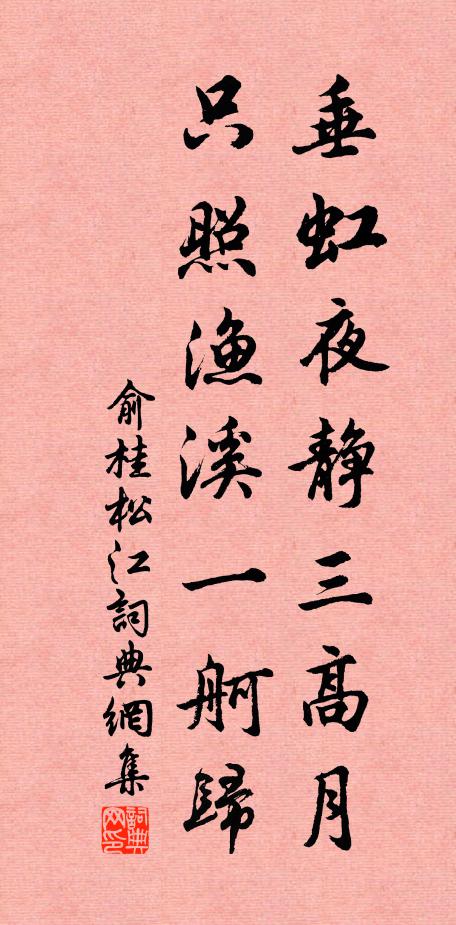 垂虹夜静三高月
只照漁溪一舸歸
俞桂松江詞典網集
詞典网印